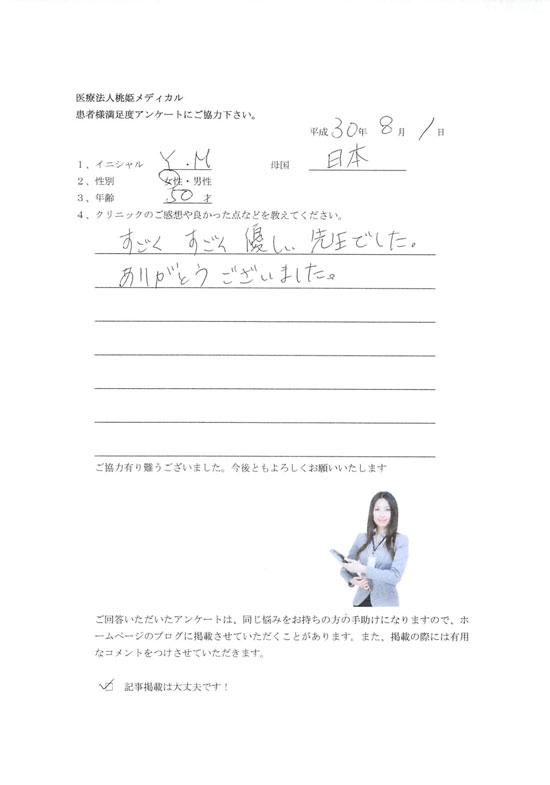 医療法人桃姫メディカル
患者様満足度アンケートにご協力下さい。
平成 30年 8月 1日
1、イニシャル Y.M 母国 日本
2、性別 女性・男性
3、年齢 50才
4、クリニックのご感想や良かった点などを教えてください。
すごく すごく 優しい 先生でした。
ありがとうございました。
ご協力有り難うございました。今後ともよろしくお願いいたします
ご回答いただいたアンケートは、同じ悩みをお持ちの方の手助けになりますので、ホ
ームページのブログに掲載させていただくことがあります。また、掲載の際には有用
なコメントをつけさせていただきます。
記事掲載は大丈夫です！